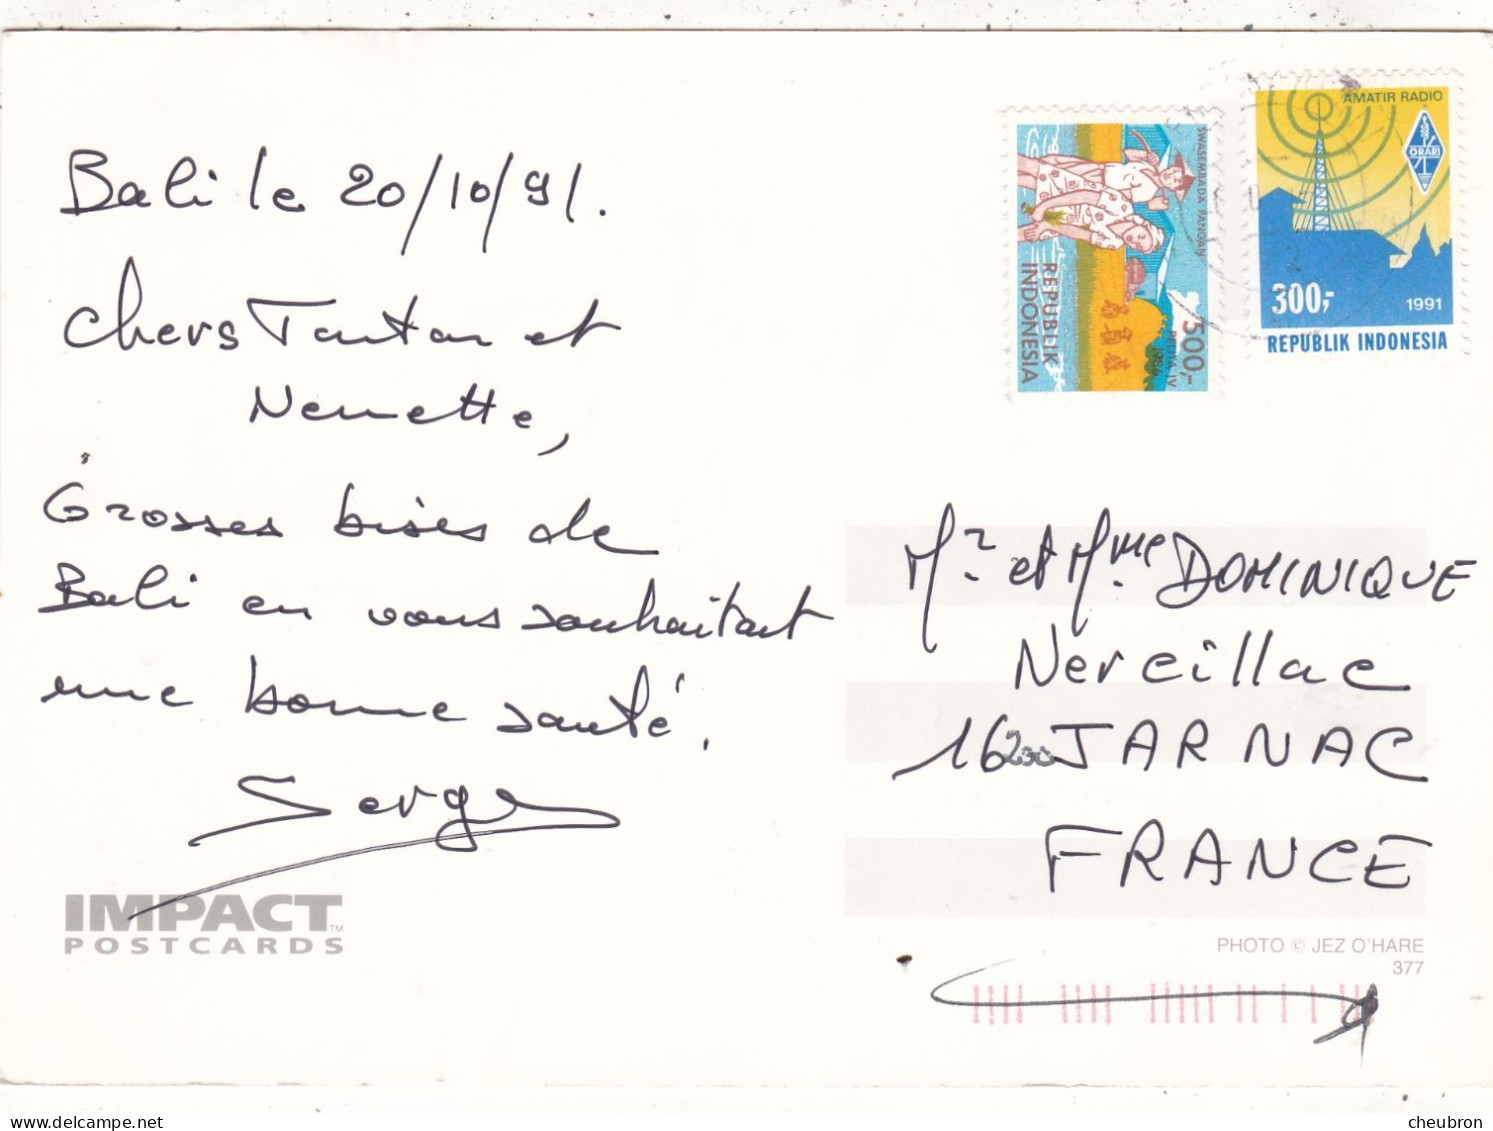 Bali le 20/10/91.
Chers Tonton et
Nenette,
Grosses bises de
Bali en vous souhaitant
une bonne santé.
Serge
IMPACT TM
POSTCARDS
SWASEMBADA PANGAN
500,-
PELITA IV
REPUBLIK
INDONESIA
AMATIR RADIO
ORARI
300,-
1991
REPUBLIK INDONESIA
Mr et Mme DOMINIQUE
Nercillac
16200 JARNAC
FRANCE
PHOTO © JEZ O'HARE
377
cheubron
delcampe.net